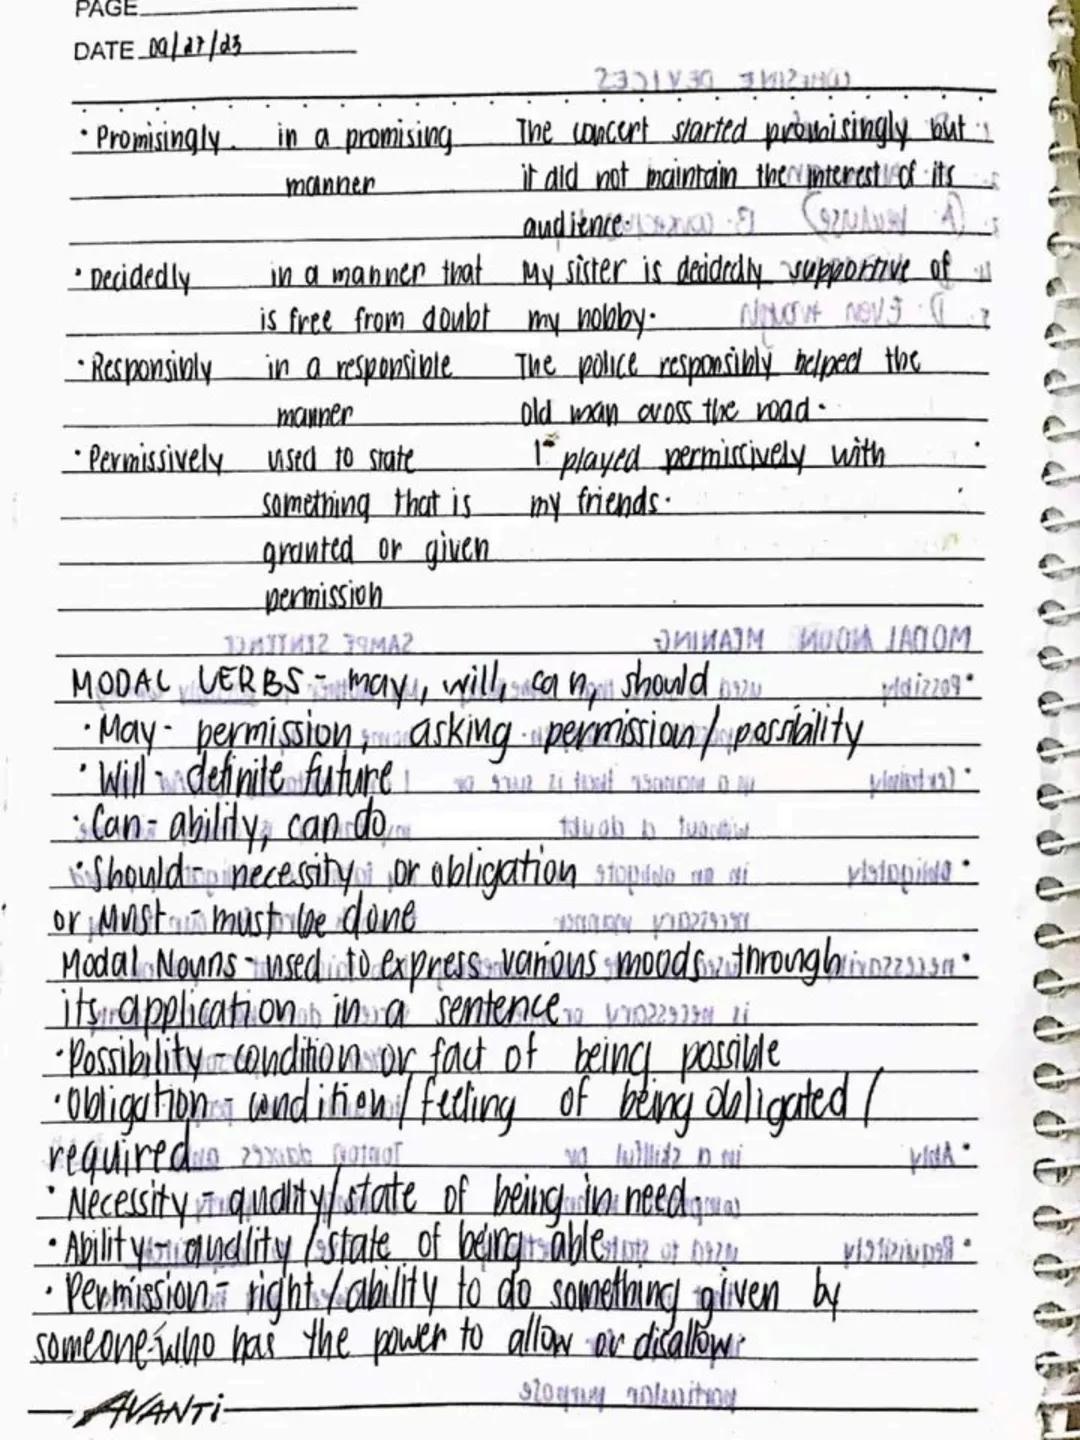 PAGE
DATE 09/27/23
· Promisingly. in a promising The concert started promisingly but
manner it did not maintain the interest of its
audience.
· Decidedly in a manner that My sister is decidedly supportive of
is free from doubt my hobby.
· Responsibly in a responsible The police responsibly helped the
manner old man cross the road.
· Permissively used to state I played permissively with
something that is my friends.
granted or given
permission
MODAL VERBS - may, will, can, should
· May - permission, asking permission / possibility
· Will - definite future
· Can - ability, can do
· Should - necessity or obligation
or Must - must be done
Modal Nouns - used to express various moods through
its application in a sentence
· Possibility - condition or fact of being possible
· Obligation - condition / feeling of being obligated /
required
· Necessity - quality / state of being in need
· Ability - quality / state of being able
· Permission - right / ability to do something given by
someone who has the power to allow or disallow.
AVANTi